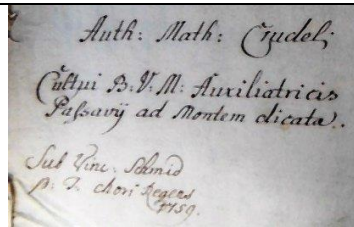 Auth: Math: Crudeli
Cultui B: V: M: Auxiliatricis
Passavij ad Montem dicata.
Sub Vinc: Schmid
p: T. chori Regens
1759.